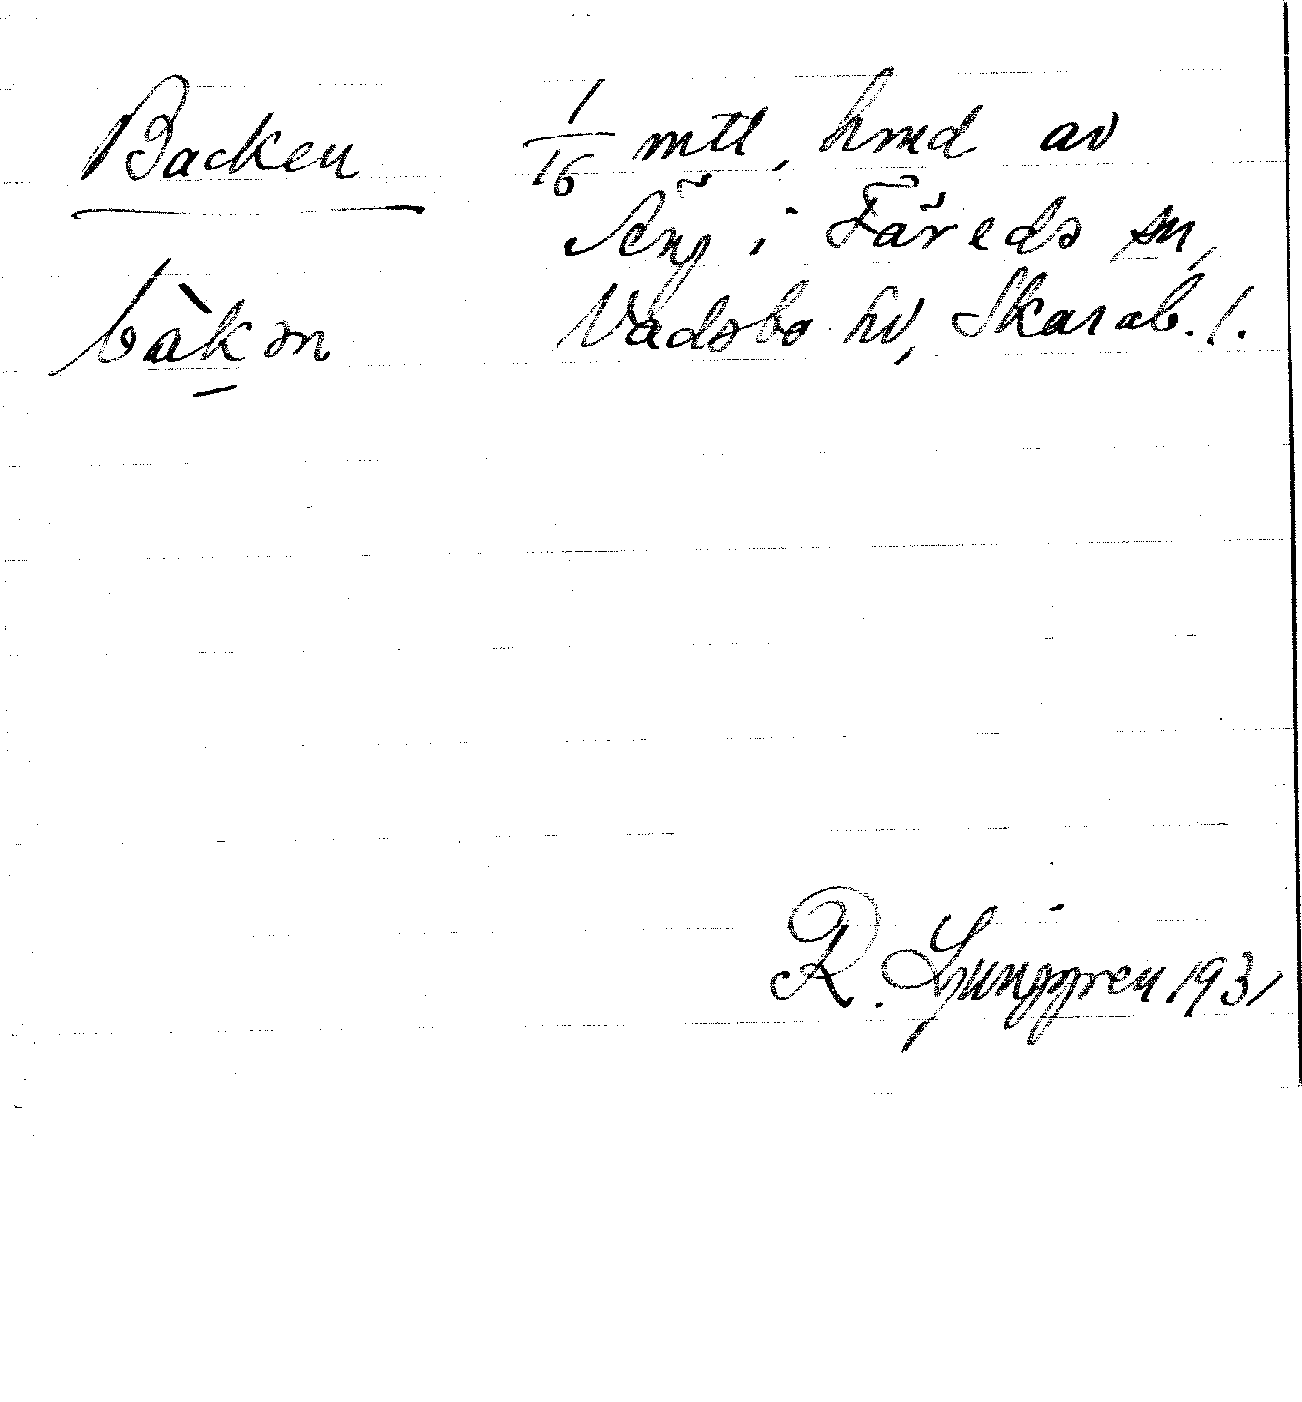 Backen
bàkən
1/16 mtl, hmd av
Äng i Färeds sn,
Vadsbo hd, Skarab. l.
R. Ljunggren 1931